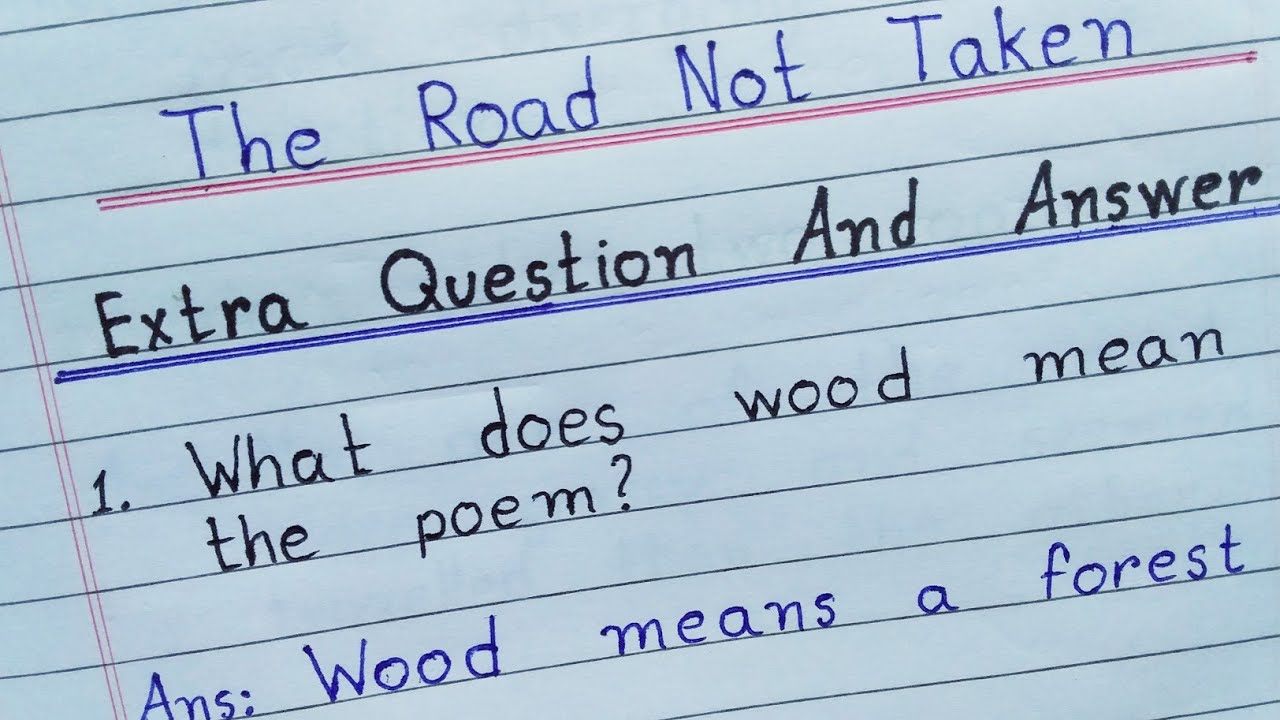 The Road Not Taken
Extra Question And Answer
1. What does wood mean
the poem?
Ans: Wood means a forest